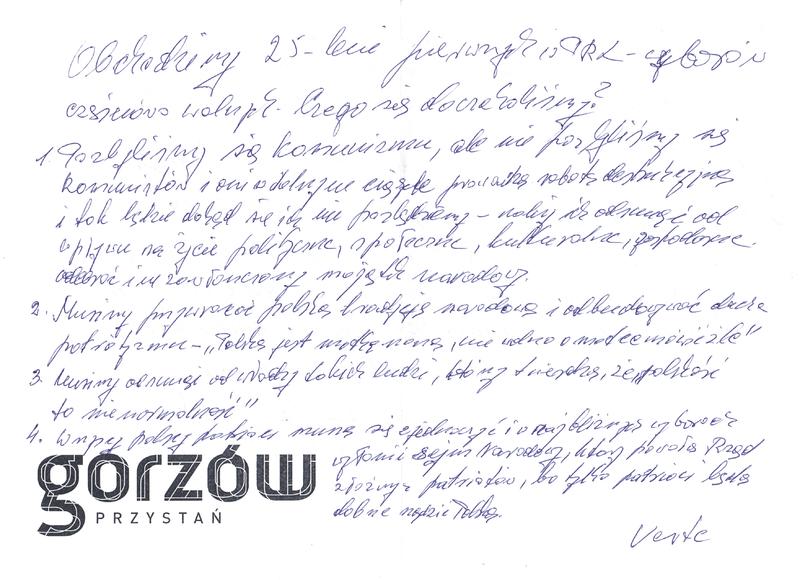 Obchodzimy 25-lecie pierwszych w PRL-wyborów
częściowo wolnych. Czego się doczekaliśmy?
1. Pozbyliśmy się komunizmu, ale nie pozbyliśmy się
komunistów i oni w dalszym ciągu prowadzą robotę destrukcyjną
i tak będzie dokąd się ich nie pozbędziemy - należy ich odsunąć od
wpływu na życie polityczne, społeczne, kulturalne, gospodarcze.
odebrać im zawłaszczony majątek narodowy.
2. Musimy przywrócić polską tradycję narodową i odbudowywać ducha
patriotyzmu - „Polska jest matką naszą, nie wolno o matce mówić źle"
3. Musimy odsunąć od władzy takich ludzi, którzy twierdzą, że polskość
to nienormalność"
4. Wszyscy polscy patrioci muszą się zjednoczyć i w najbliższych wyborach
wyłonić Sejm Narodowy, który powoła Rząd
złożony z patriotów, bo tylko patrioci będą
dobrze rządzić Polską.
gorzów
PRZYSTAŃ